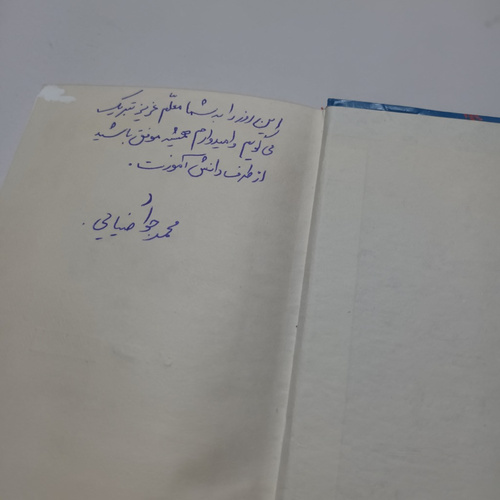 این روز را به شما معلّم عزیز تبریک
می گویم و امیدوارم همیشه موفق باشید
از طرف دانش آموزت.
محمد جواد ضیایی.